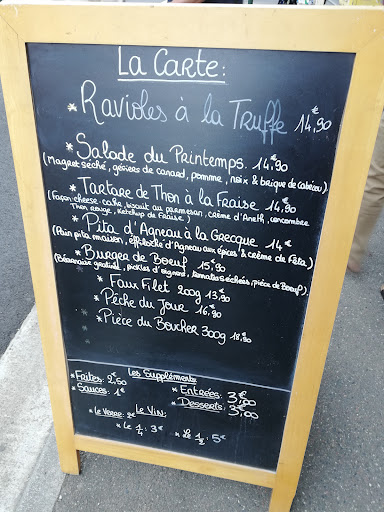 La Carte:
* Ravioles à la Truffe 14,90€
* Salade du Printemps. 14,90€
(Magret séché, gésiers de canard, pomme, noix & brique de cabécou).
* Tartare de Thon à la Fraise 14,90€
(Façon cheese cake, biscuit au parmesan, crème d'Aneth, concombre
Thon rouge, Ketchup de Fraise)
* Pita d'Agneau à la Grecque 14€
(Pain pita maison, effiloché d'Agneau aux épices & crème de Féta)
* Burger de Boeuf 15,90€
(Béarnaise gratiné, pickles d'oignons, tomates séchées, pièce de Boeuf).
* Faux Filet 200g 13,90€
* Pêche du Jour 16,90€
* Pièce du Boucher 300g 18,90€
Les Suppléments
* Frites: 2,50€
* Sauces: 1€
* Entrées: 3,00€
* Desserts: 3,00€
Le Vin:
* Le Verre: 2€
* Le 1/4: 3€
* Le 1/2: 5€